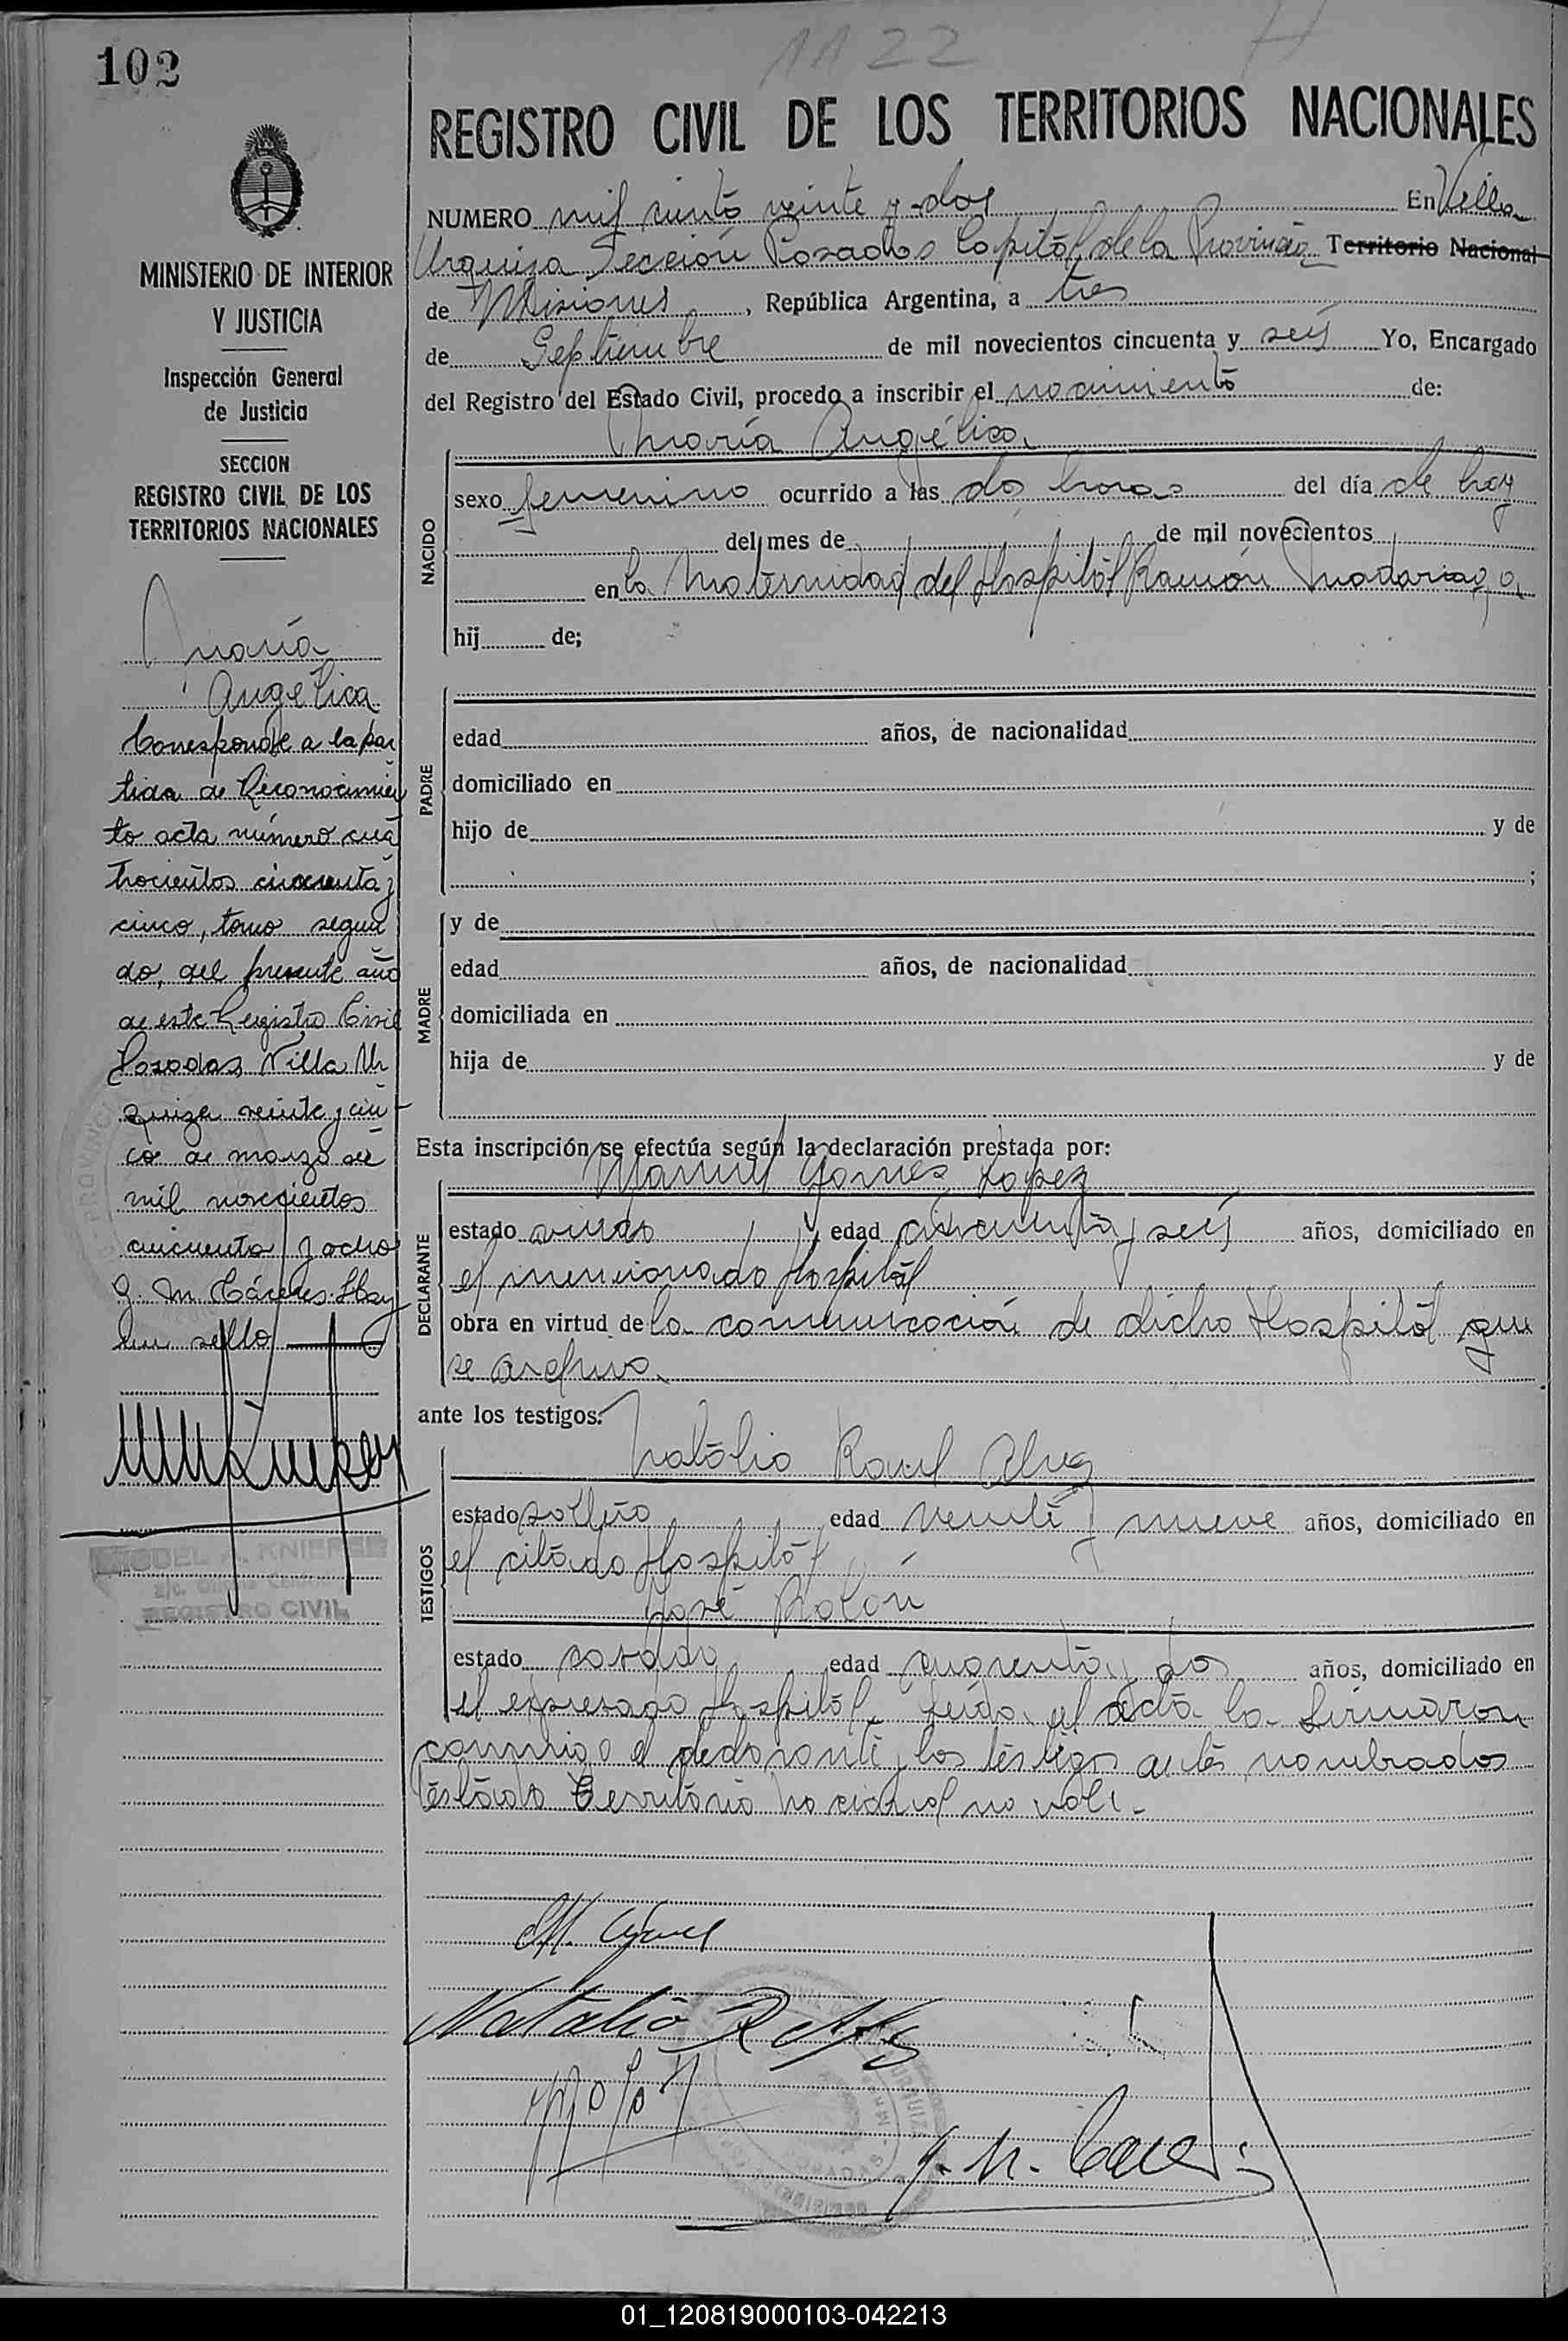 1122
H
102
REGISTRO CIVIL DE LOS TERRITORIOS NACIONALES
NUMERO mil ciento veinte y dos En Villa
Urquiza Sección Posadas Capital de la Provincia Territorio Nacional
de Misiones, República Argentina, a tres
de Septiembre de mil novecientos cincuenta y seis Yo, Encargado
del Registro del Estado Civil, procedo a inscribir el nacimiento de:
María Angélica
NACIDO
sexo femenino ocurrido a las dos horas del día de hoy
del mes de de mil novecientos
en la Maternidad del Hospital Ramón Madariaga
hij de;
PADRE
edad años, de nacionalidad
domiciliado en
hijo de y de
;
MADRE
y de
edad años, de nacionalidad
domiciliada en
hija de y de
Esta inscripción se efectúa según la declaración prestada por:
Manuel Gomes Lopez
DECLARANTE
estado viudo, edad cincuenta y seis años, domiciliado en
el mencionado Hospital
obra en virtud de la comunicación de dicho Hospital que
se archiva.
ante los testigos:
Natalio Raul Alvez
TESTIGOS
estado soltero edad veinte y nueve años, domiciliado en
el citado Hospital
José Rolón
estado casado edad cuarenta y dos años, domiciliado en
el expresado Hospital. Leída el acta la firmaron
conmigo el declarante y los testigos antes nombrados
Testado Territorio Nacional no vale.
MINISTERIO DE INTERIOR
Y JUSTICIA
Inspección General
de Justicia
SECCION
REGISTRO CIVIL DE LOS
TERRITORIOS NACIONALES
María
Angélica
Corresponde a la par
tida de Reconocimien
to acta número cua
trocientos cincuenta y
cinco, tomo segun
do, del presente año
de este Registro Civil
Posadas, Villa Ur
quiza veinte y cin
co de marzo de
mil novecientos
cincuenta y ocho
G. M. Cáceres. Hay
un sello
A. KNIEPER
REGISTRO CIVIL
Natalio R
G. M.
01_120819000103-042213